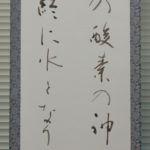 の酸素の神
終に水となり